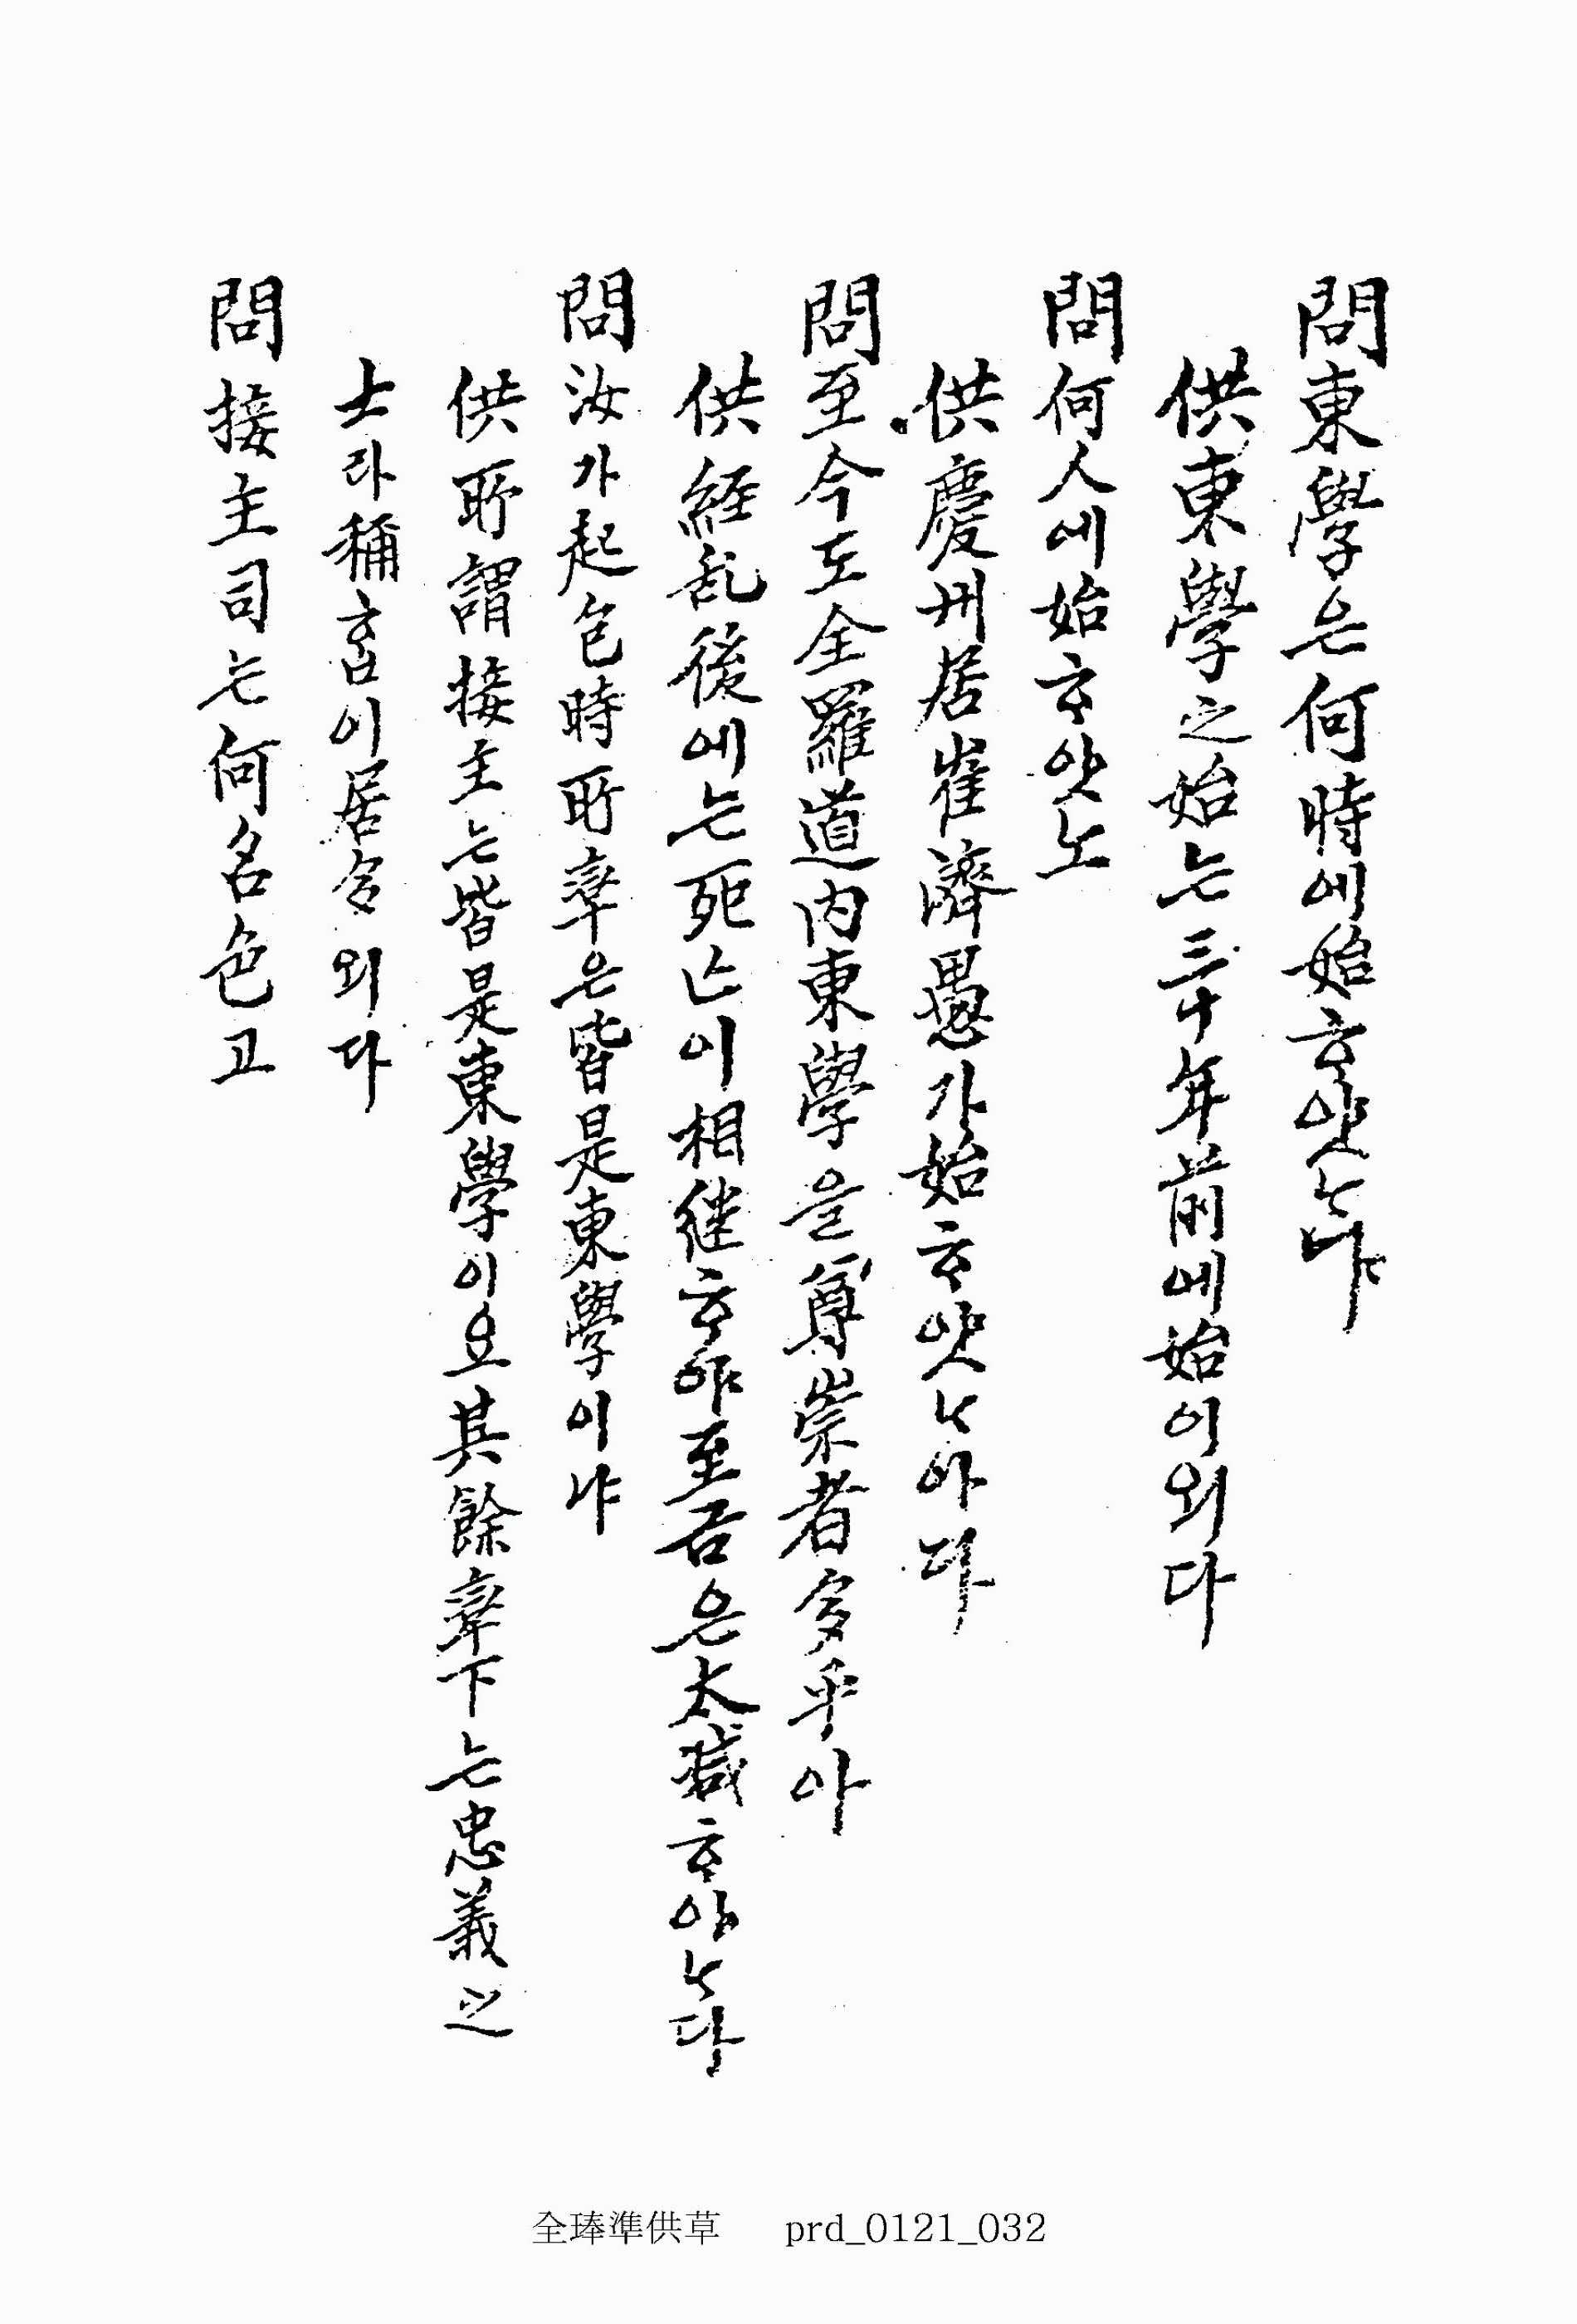 問東學는何時에始ᄒᆞ얏ᄂᆞ냐
供東學之始는三十年前에始이외다
問何人에始ᄒᆞ얏노
供慶州居崔濟愚가始ᄒᆞ얏ᄂᆞ이다
問至今도全羅道內東學을尊崇者多乎아
供經乱後에는死亡이相継ᄒᆞ야至今은太減ᄒᆞ야ᄂᆞ다
問汝가起包時所率은皆是東學이냐
供所謂接主는皆是東學이오其餘率下는忠義之
士라稱ᄒᆞᆷ이居多외다
問接主司는何名色고
全琫準供草 prd_0121_032